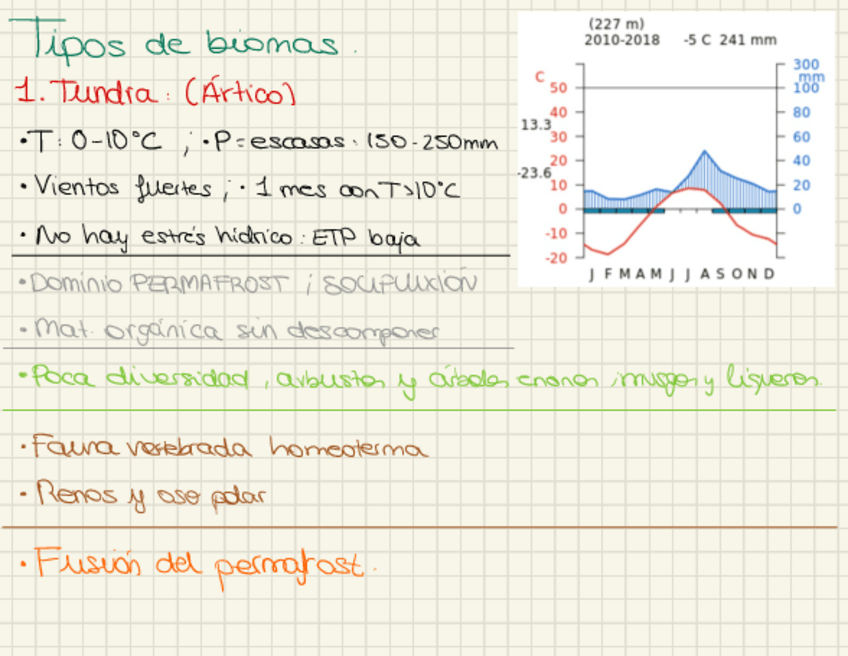 Tipos de biomas.
1. Tundra: (Ártico)
• T: 0-10°C ; • P = escasas: 150-250mm
• Vientos fuertes ; • 1 mes con T>10°C
• No hay estrés hídrico: ETP baja
• Dominio PERMAFROST ; SOLIFLUXIÓN
• Mat. orgánica sin descomponer
• Poca diversidad, arbustos y árboles enanos, musgos y líquenes.
• Fauna vertebrada homeoterma
• Renos y oso polar
• Fusión del permafrost.
(227 m)
2010-2018 -5 C 241 mm
C
300
mm
50 100
40 80
13.3
30 60
20 40
-23.6
10 20
0 0
-10
-20
J F M A M J J A S O N D